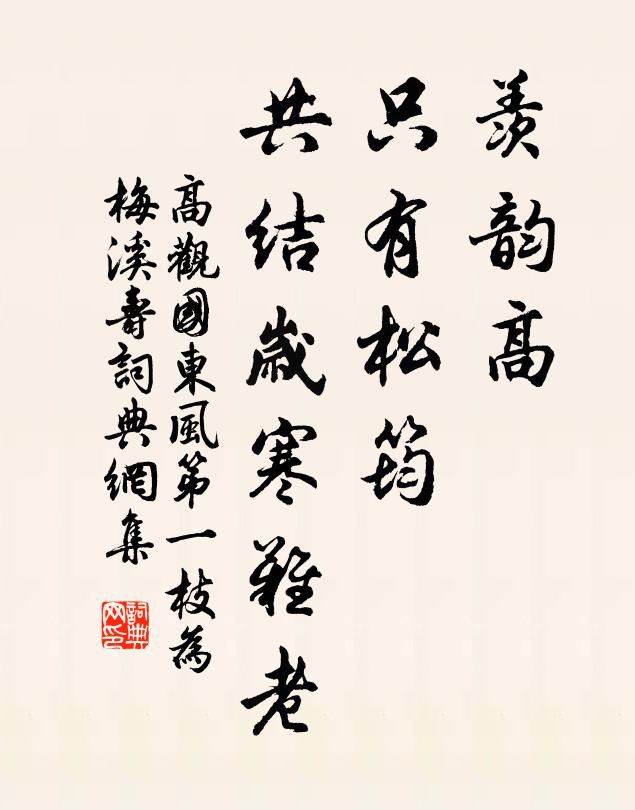 羨韵高
只有松筠
共结歲寒難老
高觀國東風第一枝為
梅溪壽詞典網集
詞典網印